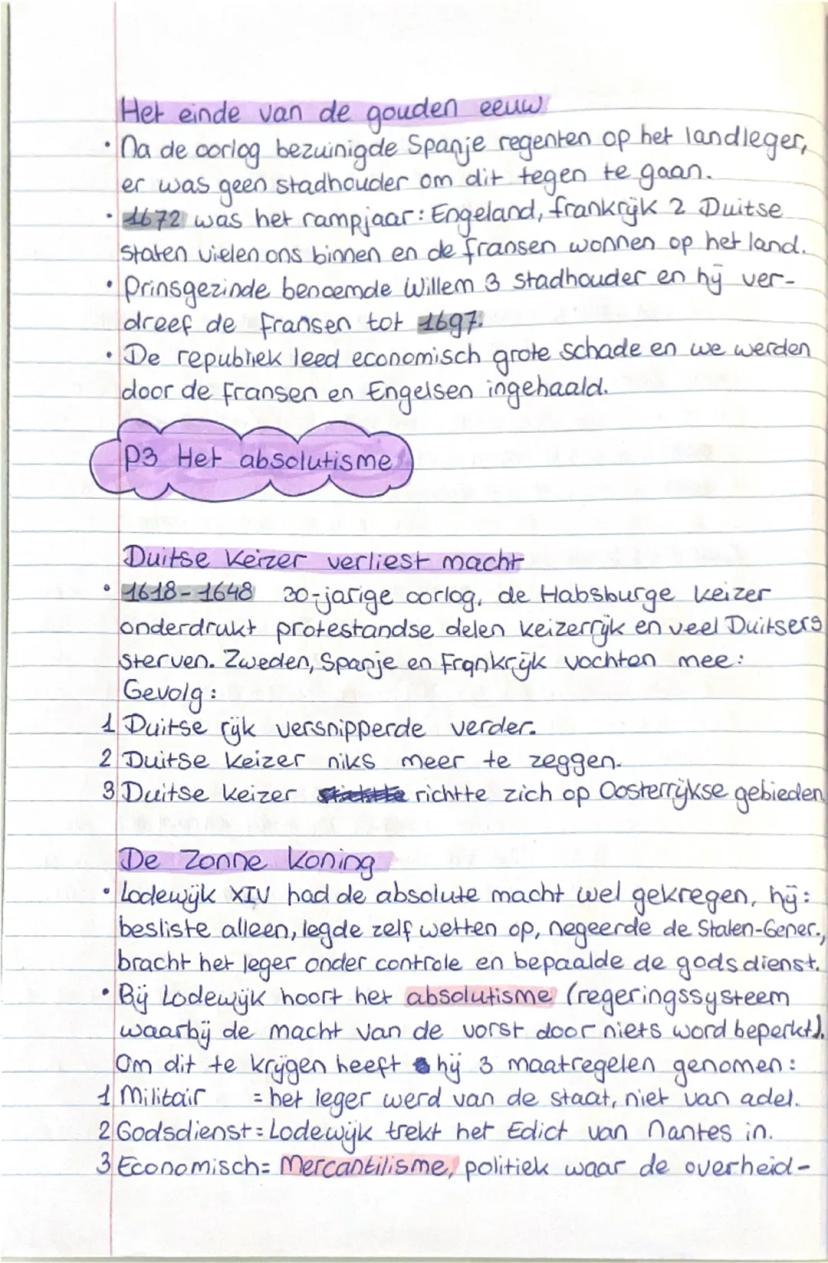 Het einde van de gouden eeuw
• Na de oorlog bezuinigde Spanje regenten op het landleger,
er was geen stadhouder om dit tegen te gaan.
• 1672 was het rampjaar: Engeland, frankrijk 2 Duitse
staten vielen ons binnen en de fransen wonnen op het land.
• Prinsgezinde benoemde Willem 3 stadhouder en hij ver-
dreef de Fransen tot 1697.
• De republiek leed economisch grote schade en we werden
door de Fransen en Engelsen ingehaald.
P3 Het absolutisme
Duitse Keizer verliest macht
• 1618-1648 30-jarige oorlog, de Habsburge keizer
onderdrukt protestandse delen keizerrijk en veel Duitsers
sterven. Zweden, Spanje en Frankrijk vochten mee:
Gevolg:
1 Duitse rijk versnipperde verder.
2 Duitse keizer niks meer te zeggen.
3 Duitse keizer richtte zich op Oosterrijkse gebieden
De Zonne koning
• Lodewijk XIV had de absolute macht wel gekregen, hij:
besliste alleen, legde zelf wetten op, negeerde de Staten-Gener.,
bracht het leger onder controle en bepaalde de godsdienst.
• Bij Lodewijk hoort het absolutisme (regeringssysteem
waarbij de macht van de vorst door niets word beperkt).
Om dit te krijgen heeft hij 3 maatregelen genomen:
1 Militair = het leger werd van de staat, niet van adel.
2 Godsdienst = Lodewijk trekt het Edict van Nantes in.
3 Economisch = Mercantilisme, politiek waar de overheid-